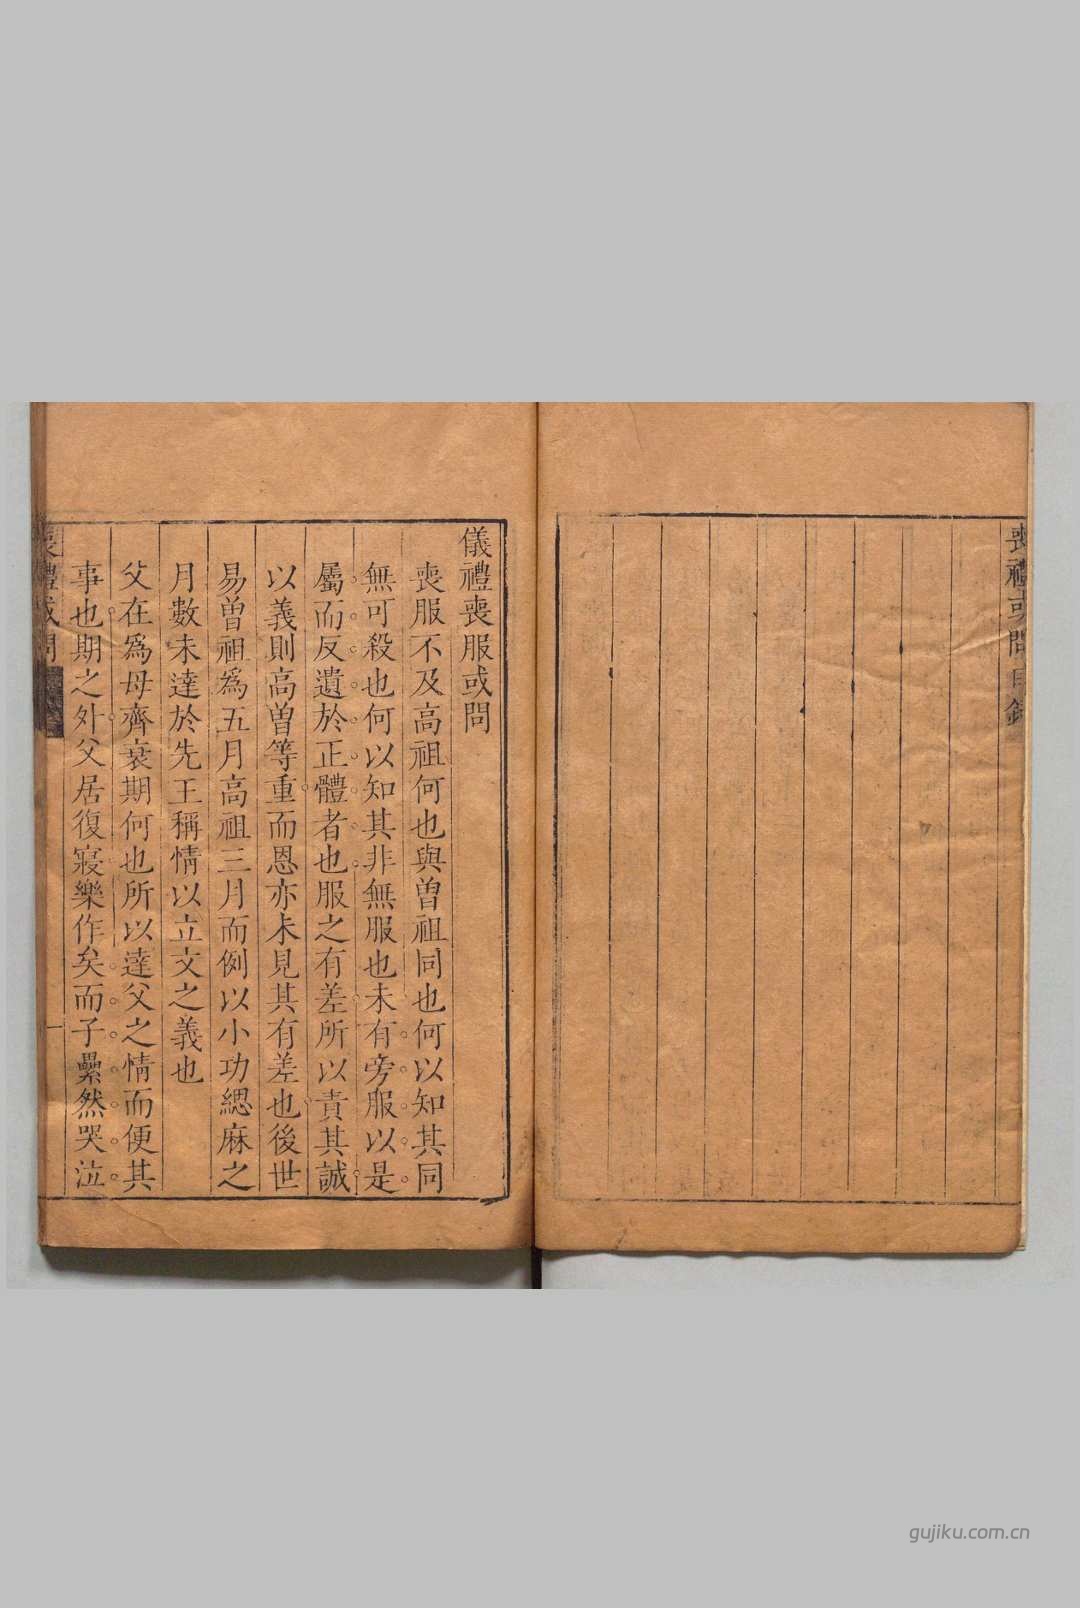 喪禮或問目錄
儀禮喪服或問
喪服不及高祖何也與曾祖同也何以知其同
無可殺也何以知其非無服也未有旁服以是
屬而反遺於正體者也服之有差所以責其誠
以義則高曾等重而恩亦未見其有差也後世
易曾祖爲五月高祖三月而例以小功緦麻之
月數未達於先王稱情以立文之義也
父在爲母齊衰期何也所以達父之情而便其
事也期之外父居復寢樂作矣而子纍然哭泣
喪禮或問
一
gujiku.com.cn